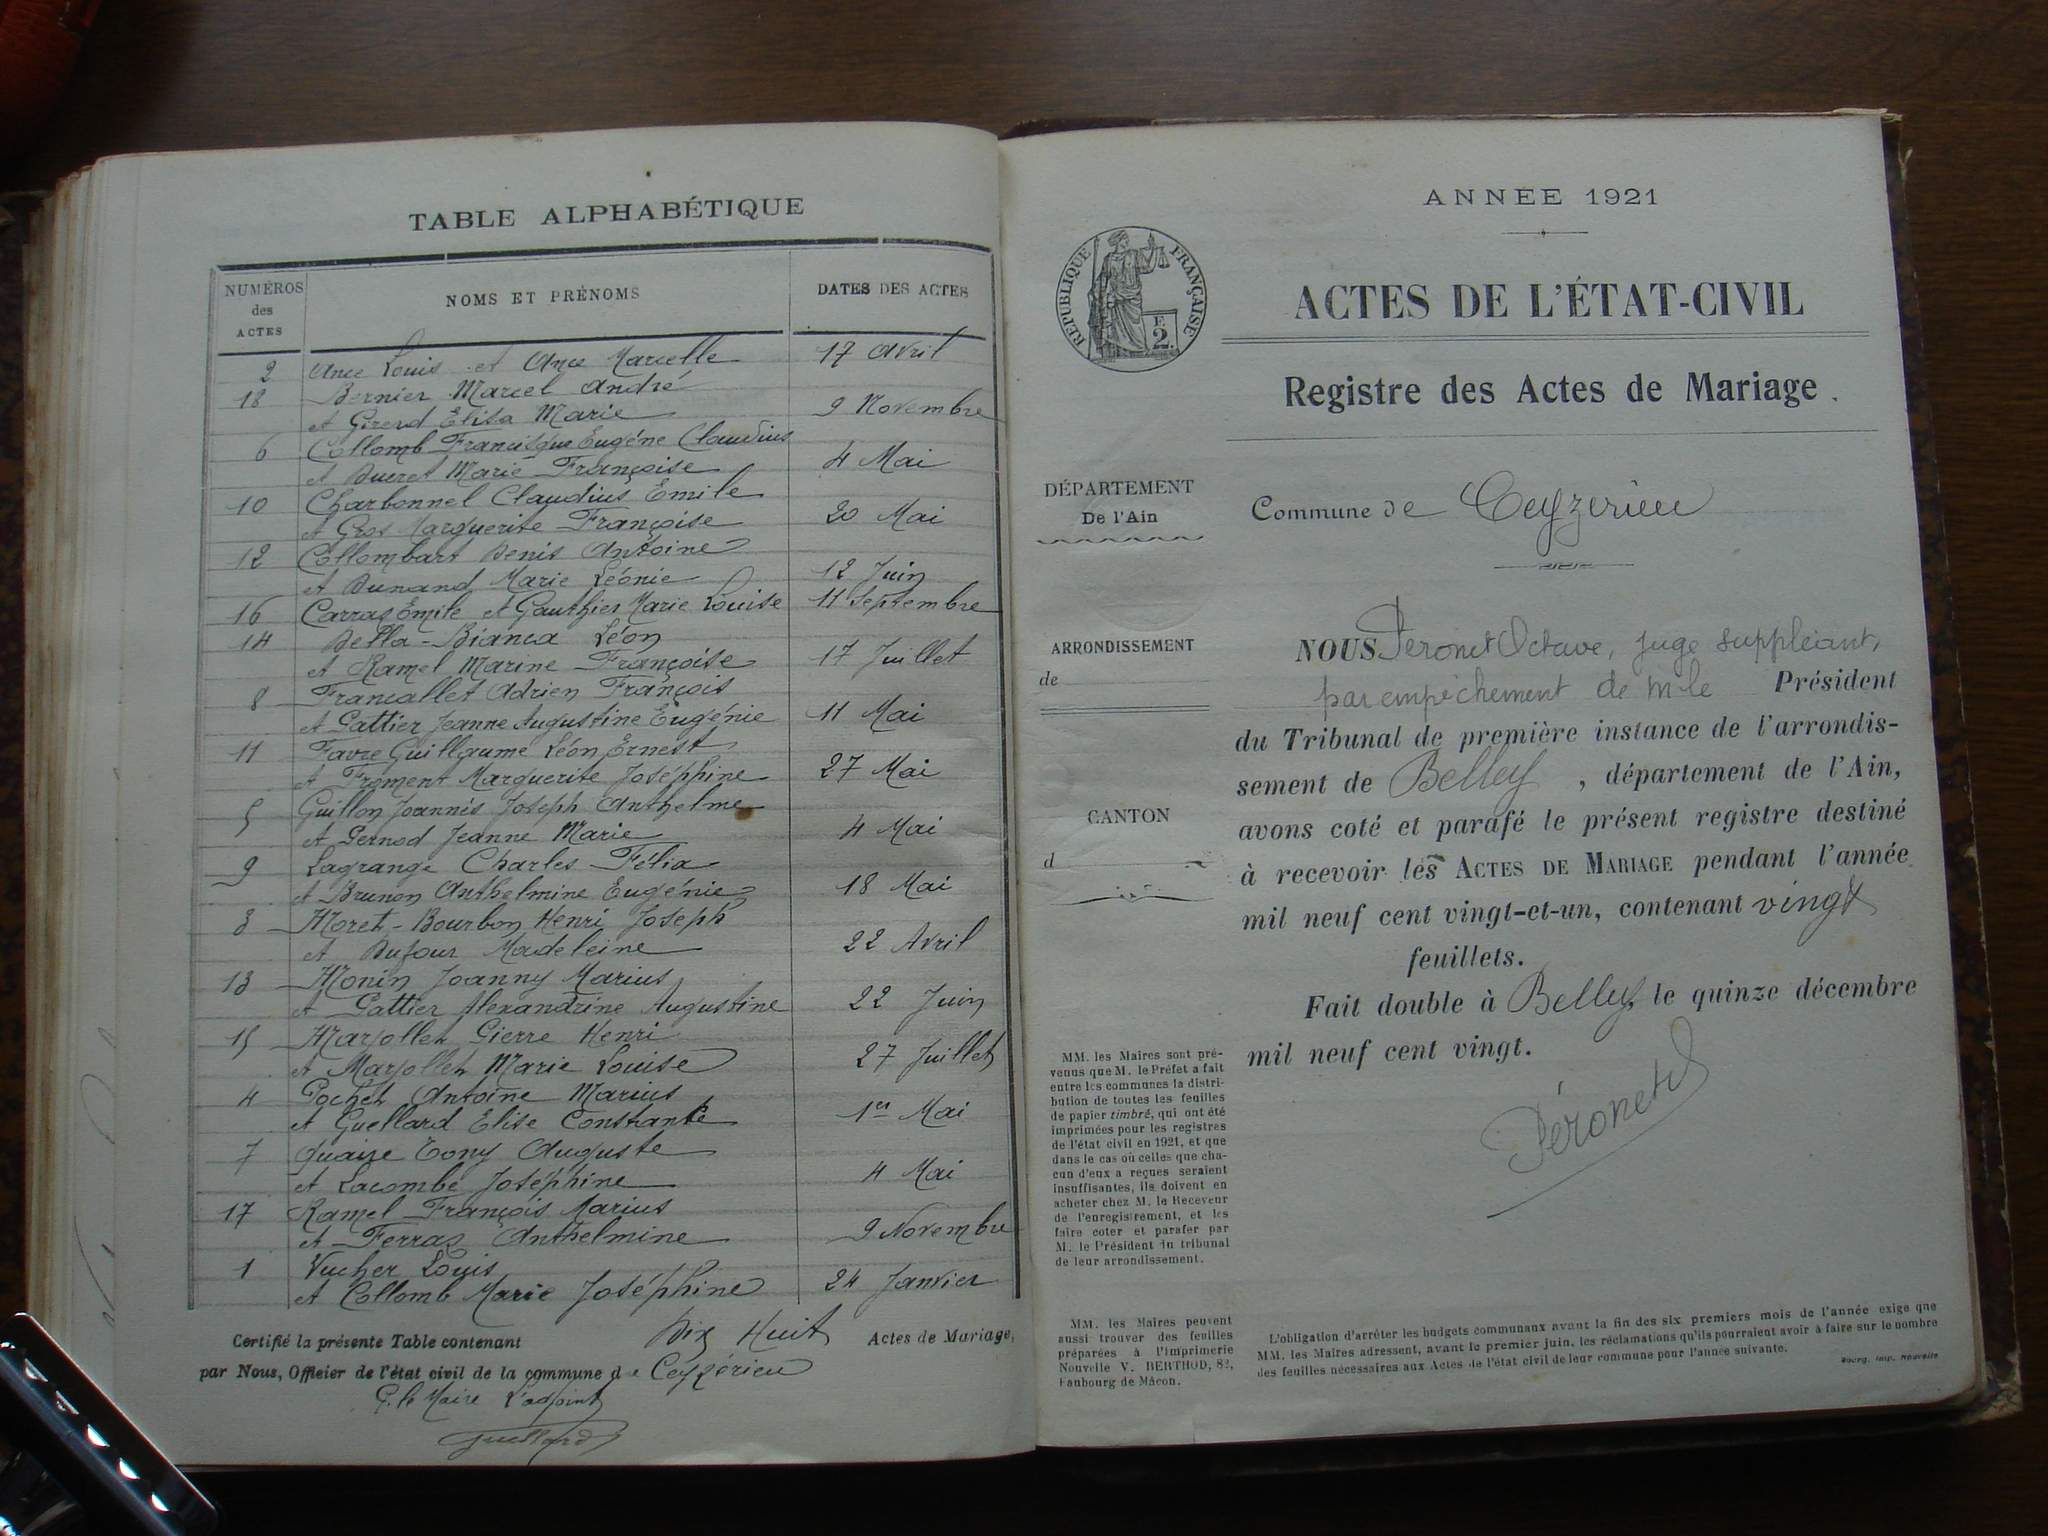 TABLE ALPHABÉTIQUE
NUMÉROS des ACTES NOMS ET PRÉNOMS DATES DES ACTES
2 Ance Louis et Ance Marcelle 17 Avril
18 Bernier Marcel André
et Girerd Elisa Marie 9 Novembre
6 Collomb Francisque Eugéne Claudius
et Ducret Marie Françoise 4 Mai
10 Charbonnel Claudius Emile
et Gros Marguerite Françoise 20 Mai
12 Collombart Denis Antoine
et Dunand Marie Léonie 12 Juin
16 Carraz Emile et Gauthier Marie Louise 11 Septembre
14 Della-Bianca Léon
et Ramel Marine Françoise 17 Juillet
8 Francallet Adrien François
et Gattier Jeanne Augustine Eugénie 11 Mai
11 Favre Guillaume Léon Ernest
et Froment Marguerite Joséphine 27 Mai
5 Guillon Joannès Joseph Anthelme
et Pernod Jeanne Marie 4 Mai
9 Lagrange Charles Félix
et Brunon Anthelmine Eugénie 18 Mai
3 Moret-Bourbon Henri Joseph
et Dufour Madeleine 22 Avril
13 Monin Joanny Marius
et Gattier Alexandrine Augustine 22 Juin
15 Marjollet Pierre Henri
et Marjollet Marie Louise 27 Juillet
4 Pochet Antoine Marius
et Guellard Elise Constante 1er Mai
7 Tony Auguste
et Lacombe Joséphine 4 Mai
17 Ramel François Marius
et Ferraz Anthelmine 9 Novembre
1 Vucher Louis
et Collomb Marie Joséphine 24 Janvier
Certifié la présente Table contenant Dix Huit Actes de Mariage,
par Nous, Officier de l'état civil de la commune de Ceyzérieu
P. le Maire L'adjoint
Guellard
ANNÉE 1921
RÉPUBLIQUE FRANÇAISE
E 2.
ACTES DE L'ÉTAT-CIVIL
Registre des Actes de Mariage.
DÉPARTEMENT
De l'Ain
Commune de Ceyzerieu
ARRONDISSEMENT
de
CANTON
d
NOUS Peronet Octave, juge suppléant,
par empêchement de M le Président
du Tribunal de première instance de l'arrondis-
sement de Belley, département de l'Ain,
avons coté et parafé le présent registre destiné
à recevoir les ACTES DE MARIAGE pendant l'année
mil neuf cent vingt-et-un, contenant vingt
feuillets.
Fait double à Belley, le quinze décembre
mil neuf cent vingt.
Péronet
MM. les Maires sont pré-
venus que M. le Préfet a fait
entre les communes la distri-
bution de toutes les feuilles
de papier timbré, qui ont été
imprimées pour les registres
de l'état civil en 1921, et que
dans le cas où celles que cha-
cun d'eux a reçues seraient
insuffisantes, ils doivent en
acheter chez M. le Receveur
de l'enregistrement, et les
faire coter et parafer par
M. le Président du tribunal
de leur arrondissement.
MM. les Maires peuvent
aussi trouver des feuilles
préparées à l'Imprimerie
Nouvelle V. BERTHOD, 82,
Faubourg de Mâcon.
L'obligation d'arrêter les budgets communaux avant la fin des six premiers mois de l'année exige que
MM. les Maires adressent, avant le premier juin, les réclamations qu'ils pourraient avoir à faire sur le nombre
des feuilles nécessaires aux Actes de l'état civil de leur commune pour l'année suivante.
Bourg, Imp. Nouvelle